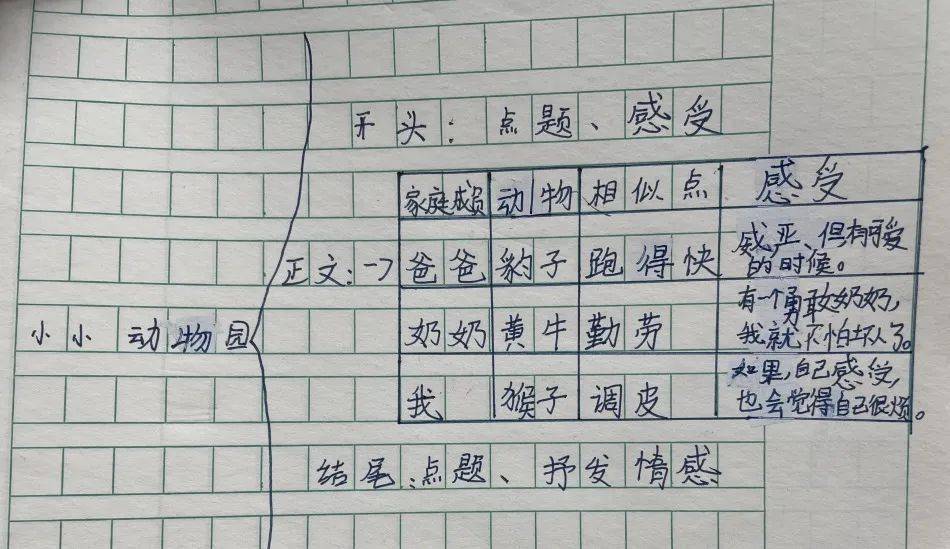 开头：点题、感受
家庭成员 动物 相似点 感受
正文：→ 爸爸 豹子 跑得快 威严、但有可爱的时候。
小小动物园 奶奶 黄牛 勤劳 有一个勇敢奶奶，我就不怕坏人了。
我 猴子 调皮 如果，自己感受，也会觉得自己很烦。
结尾：点题、抒发情感